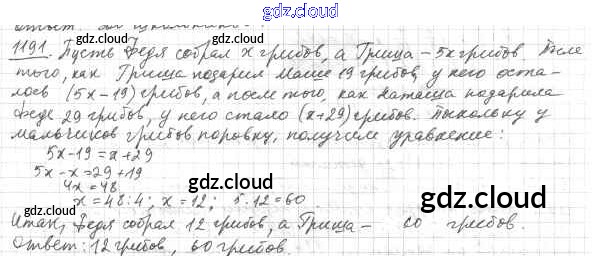 gdz.cloud
1191. Пусть Федя собрал x грибов, а Гриша – 5x грибов. После
того, как Гриша подарил Маше 19 грибов, у него оста-
лось (5x-19) грибов, а после того, как Наташа подарила
Феде 29 грибов, у него стало (x+29) грибов. Поскольку у
gdz.cloud
мальчиков грибов поровну, получим уравнение:
5x-19=x+29
5x-x=29+19
gdz.cloud
4x=48
x=48:4; x=12; 5·12=60.
gdz.cloud
Итак, Федя собрал 12 грибов, а Гриша – 60 грибов.
Ответ: 12 грибов, 60 грибов.
gdz.cloud